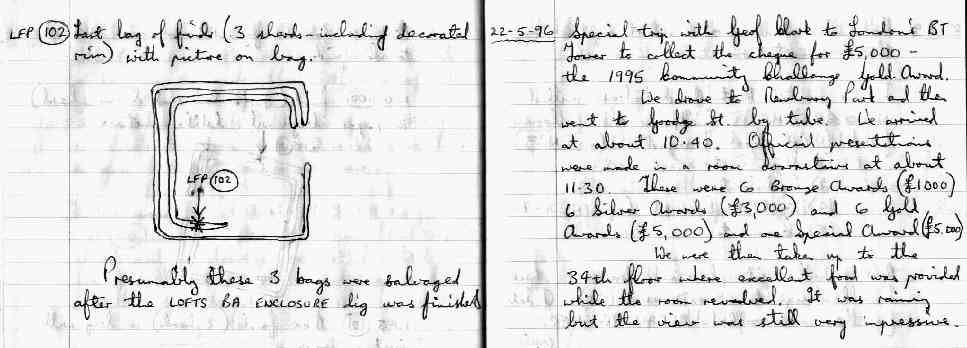 LFP (102) Last bag of finds (3 sherds - including decorated
rim) with picture on bag.
LFP (102)
Presumably these 3 bags were salvaged
after the LOFTS BA ENCLOSURE dig was finished
22-5-96 Special trip with Geof Clark to London's BT
Tower to collect the cheque for £5,000 -
the 1995 Community Challenge Gold Award.
We drove to Newbury Park and then
went to Goodge St. by tube. We arrived
at about 10.40. Official presentations
were made in a room downstairs at about
11.30. There were 6 Bronze Awards (£1000)
6 Silver Awards (£3,000) and 6 Gold
Awards (£5,000) and one Special Award (£5,000)
We were then taken up to the
34th floor where excellent food was provided
while the room revolved. It was raining
but the view was still very impressive.